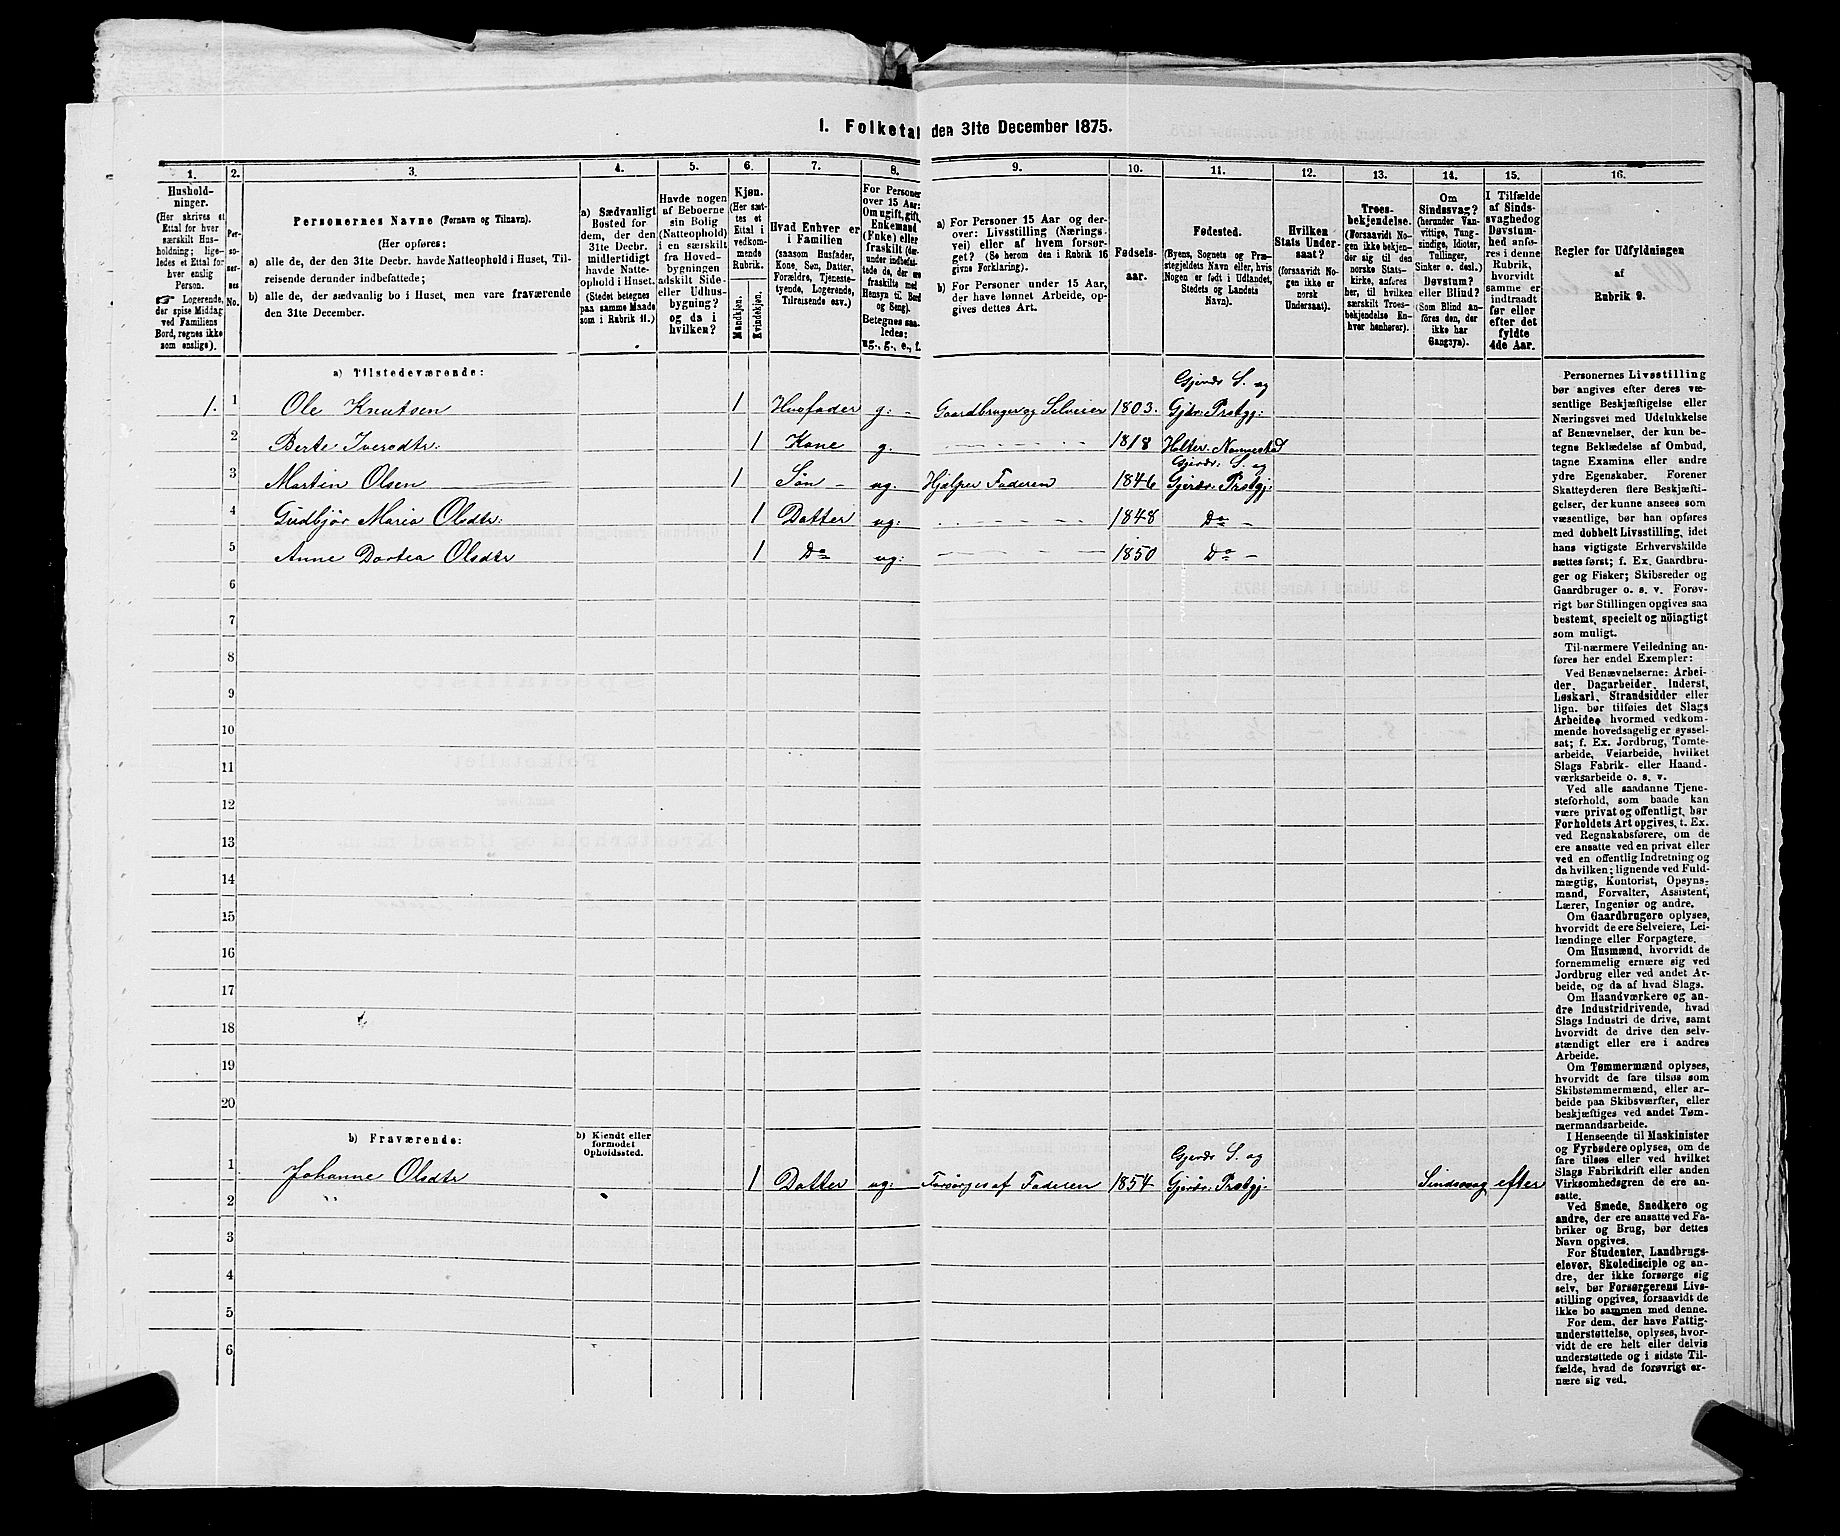 1. Folketal den 31te December 1875.
1. 2. 3. 4. 5. 6. 7. 8. 9. 10. 11. 12. 13. 14. 15. 16.
Hushold-
ninger.
(Her skrives et
Ettal for hver
særskilt Hus-
holdning; lige-
ledes et Ettal for
hver enslig
Person.
☞ Logerende,
der spise Middag
ved Familiens
Bord, regnes ikke
som enslige).
Per-
so-
ner-
nes
No.
Personernes Navne (Fornavn og Tilnavn).
(Her opføres:
a) alle de, der den 31te Decbr. havde Natteophold i Huset, Til-
reisende derunder indbefattede;
b) alle de, der sædvanlig bo i Huset, men vare fraværende
den 31te December.
a) Sædvanligt
Bosted for
dem, der den
31te Decbr.
midlertidigt
havde Natte-
ophold i Huset.
(Stedet betegnes
paa samme Maade
som i Rubrik 11.)
Havde nogen
af Beboerne
sin Bolig
(Natteophold)
i en særskilt
fra Hoved-
bygningen
adskilt Side-
eller Udhus-
bygning?
og da i
hvilken?
Kjøn.
(Her sæt-
tes et
Ettal i
vedkom-
mende
Rubrik.
Mandkjøn.
Kvindekjøn.
Hvad Enhver er
i Familien
(saasom Husfader,
Kone, Søn, Datter,
Forældre, Tjeneste-
tyende, Logerende,
Tilreisende osv.)
For Personer
over 15 Aar:
Om ugift, gift,
Enkemand
(Enke) eller
fraskilt (der-
under indbefat-
tede de, der ere
fraskilte med
Hensyn til Bord
og Seng).
Betegnes saa-
ledes:
ug., g., e., f.
a) For Personer 15 Aar og der-
over: Livsstilling (Nærings-
vei) eller af hvem forsør-
get? (Se herom den i Rubrik 16
givne Forklaring).
b) For Personer under 15 Aar,
der have lønnet Arbeide, op-
gives dettes Art.
Fødsels-
aar.
Fødested.
(Byens, Sognets og Præ-
stegjeldets Navn eller, hvis
Nogen er født i Udlandet,
Stedets og Landets
Navn).
Hvilken
Stats Under-
saat?
(forsaavidt No-
gen ikke er
norsk
Undersaat).
Troes-
bekjendelse.
(Forsaavidt No-
gen ikke bekjen-
der sig til den
norske Stats-
kirke, anføres
her, til hvilken
særskilt Troes-
bekjendelse En-
hver henhører).
Om
Sindssvag?
(herunder Van-
vittige, Tung-
sindige, Idioter,
Tullinger,
Sinker o. desl.)
Døvstum?
eller Blind?
(Som Blind an-
føres den, der
ikke har
Gangsyn).
I Tilfælde
af Sinds-
svaghed og
Døvstum-
hed anfø-
res i denne
Rubrik,
hvorvidt
samme er
indtraadt
før eller
efter det
fyldte
4de Aar.
Regler for Udfyldningen
af
Rubrik 9.
a) Tilstedeværende:
1. 1 Ole Knutsen 1 Husfader g: - Gaardbruger og Selveier 1803. Gjerdr S. og Gjdr. Prstgj:
2 Berte Iversdtr. 1 Kone g. 1818 Holter. Nannestad
3 Martin Olsen 1 Søn - ug. Hjelper Faderen 1846 Gjerdr. S. og Gjerdr. Prstgj:
4 Gudbjør Maria Olsdtr: 1 Datter ug: 1848 Do -
5 Anne Dortea Olsdtr 1 Do ug: 1850 Do -
6
7
8
9
10
11
12
13
14
15
16
17
18
19
20
b) Fraværende:
b) Kjendt eller
formodet
Opholdssted.
1 Johanne Olsdtr 1 Datter ug: Forsørges af Faderen 1854 Gjerdr S. og Gjerdr. Prstgj. Sindssvag efter
2 "
3
4
5
6
Personernes Livsstilling
bør angives efter deres væ-
sentlige Beskjæftigelse eller
Næringsvei med Udelukkelse
af Benævnelser, der kun be-
tegne Beklædelse af Ombud,
tagne Examina eller andre
ydre Egenskaber. Forener
Skatteyderen flere Beskjæfti-
gelser, der kunne ansees som
væsentlige, bør han opføres
med dobbelt Livsstilling, idet
hans vigtigste Erhvervskilde
sættes først; f. Ex. Gaardbru-
ger og Fisker; Skibsreder og
Gaardbruger o. s. v. Forøv-
rigt bør Stillingen opgives saa
bestemt, specielt og nöiagtigt
som muligt.
Til nærmere Veiledning an-
føres her endel Exempler:
Ved Benævnelserne: Arbei-
der, Dagarbeider, Inderst,
Løskarl, Strandsidder eller
lign. bør tilføies det Slags
Arbeide, hvormed vedkom-
mende hovedsagelig er syssel-
sat; f. Ex. Jordbrug, Tomte-
arbeide, Veiarbeide, hvilket
Slags Fabrik- eller Haand-
værksarbeide o. s. v.
Ved alle saadanne Tjene-
steforhold, som baade kan
være privat og offentligt, bør
Forholdets Art opgives, t. Ex.
ved Regnskabsførere, om de
ere ansatte ved en privat eller
ved en offentlig Indretning og
da hvilken; lignende ved Fuld-
mægtig, Kontorist, Opsyns-
mand, Forvalter, Assistent,
Lærer, Ingeniør og andre.
Om Gaardbrugere oplyses,
hvorvidt de ere Selveiere, Lei-
lændinge eller Forpagtere.
Om Husmænd, hvorvidt de
fornemmelig ernære sig ved
Jordbrug eller ved andet Ar-
beide, og da af hvad Slags.
Om Haandværkere og an-
dre Industridrivende, hvad
Slags Industri de drive, samt
hvorvidt de drive den selv-
stændigt eller ere i andres
Arbeide.
Om Tømmermænd oplyses,
hvorvidt de fare tilsøs som
Skibstømmermænd, eller ar-
beide paa Skibsværfter, eller
beskjæftiges ved andet Tøm-
mermandsarbeide.
I Henseende til Maskinister
og Fyrbødere oplyses, om de
fare tilsøs eller ved hvilket
Slags Fabrikdrift eller anden
Virksomhedsgren de ere an-
satte.
Ved Smede, Snedkere og
andre, der ere ansatte ved Fa-
briker og Brug, bør dettes
Navn opgives.
For Studenter, Landbrugs-
elever, Skoledisciple og an-
dre, der ikke forsørge sig
selv, bør Forsørgerens Livs-
stilling opgives, forsaavidt de
ikke bo sammen med denne.
For dem, der have Fattig-
understøttelse, oplyses, hvor-
vidt de ere helt eller delvis
understøttede og i sidste Til-
fælde, hvad de forøvrigt er-
nære sig ved.